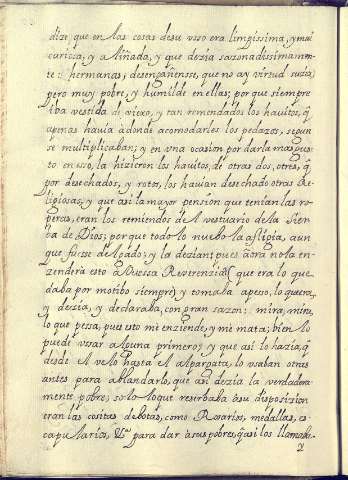 dize, que en las cosas desu vsso era limpissima, y mui
curiosa, y aliñada, y que dezia sazonadissimamen-
te: hermanas, desengañensse, que no ay virtud suzia;
pero muy pobre, y humilde en ellas; por que siempre
iba vestida di viexo, y tan remendados los hauitos, q̃
apenas hauia adonde acomodarles los pedazos, segun
se multiplicaban; y en vna ocasion por darla mas gus-
to en esso, la hizieron los hauitos, de otras dos, o tres, q̃
por desechados, y rotos, los hauian desechado otras Re-
ligiosas; y que asi la mayor pension que tenian las ro-
peras, eran los remiendos del vestuario de la Sier-
ba de Dios; por que todo lo nuebo la afligia, aun
que fuesse delgado; y la dezian: pues a otra no la en-
zenderà esto à Vuessa Reverenzia (que era lo que
daba por motibo siempre) y tomaba apeso, lo que era,
y dezia, y declaraba, con gran sazon: mira, mire,
lo que pessa, pues esto me enziende, y me mata; bien lo
puede vssar alguna primero; y que asi lo hazia, q̃
desde el velo hasta el alpargate, lo vsaban otras
antes para ablandarlo, que asi dezia la verdadera
mente pobre; solo loque reserbaba àsu disposizion
eran las cositas debotas, como Rosarios, medallas, es-
capularios, &ª para dar àsus pobres, q̃ asi los llamaba